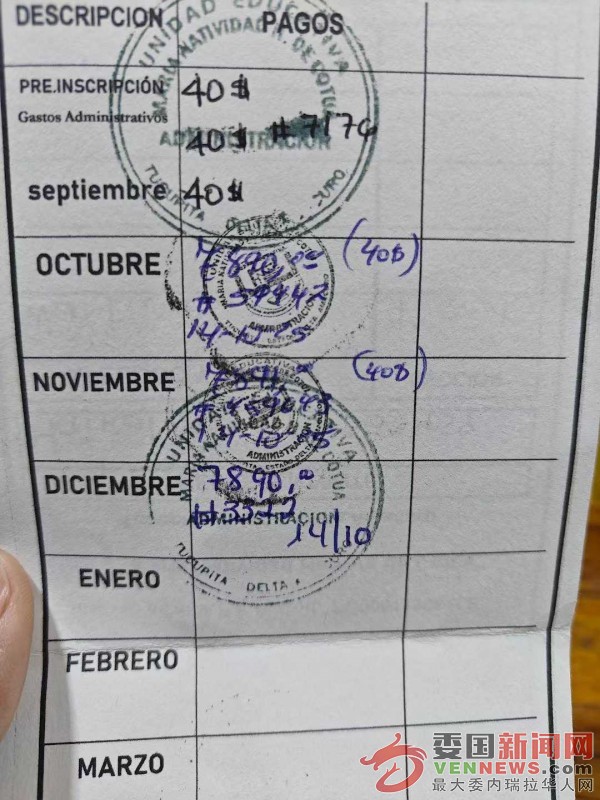 DESCRIPCION PAGOS
PRE.INSCRIPCIÓN 40$
Gastos Administrativos 40$ #7176
septiembre 40$
UNIDAD EDUCATIVA
MARIA NATIVIDAD DE COTUA
ADMINISTRACION
TUCUPITA
OCTUBRE 7890,00 (40$)
14-10-25
ADMINISTRACION
NOVIEMBRE (40$)
14-10-25
ADMINISTRACION
DICIEMBRE 7890,00
14/10
ADMINISTRACION
TUCUPITA DELTA
ENERO
FEBRERO
MARZO
委国新闻网
VENNEWS.COM
最大委内瑞拉华人网